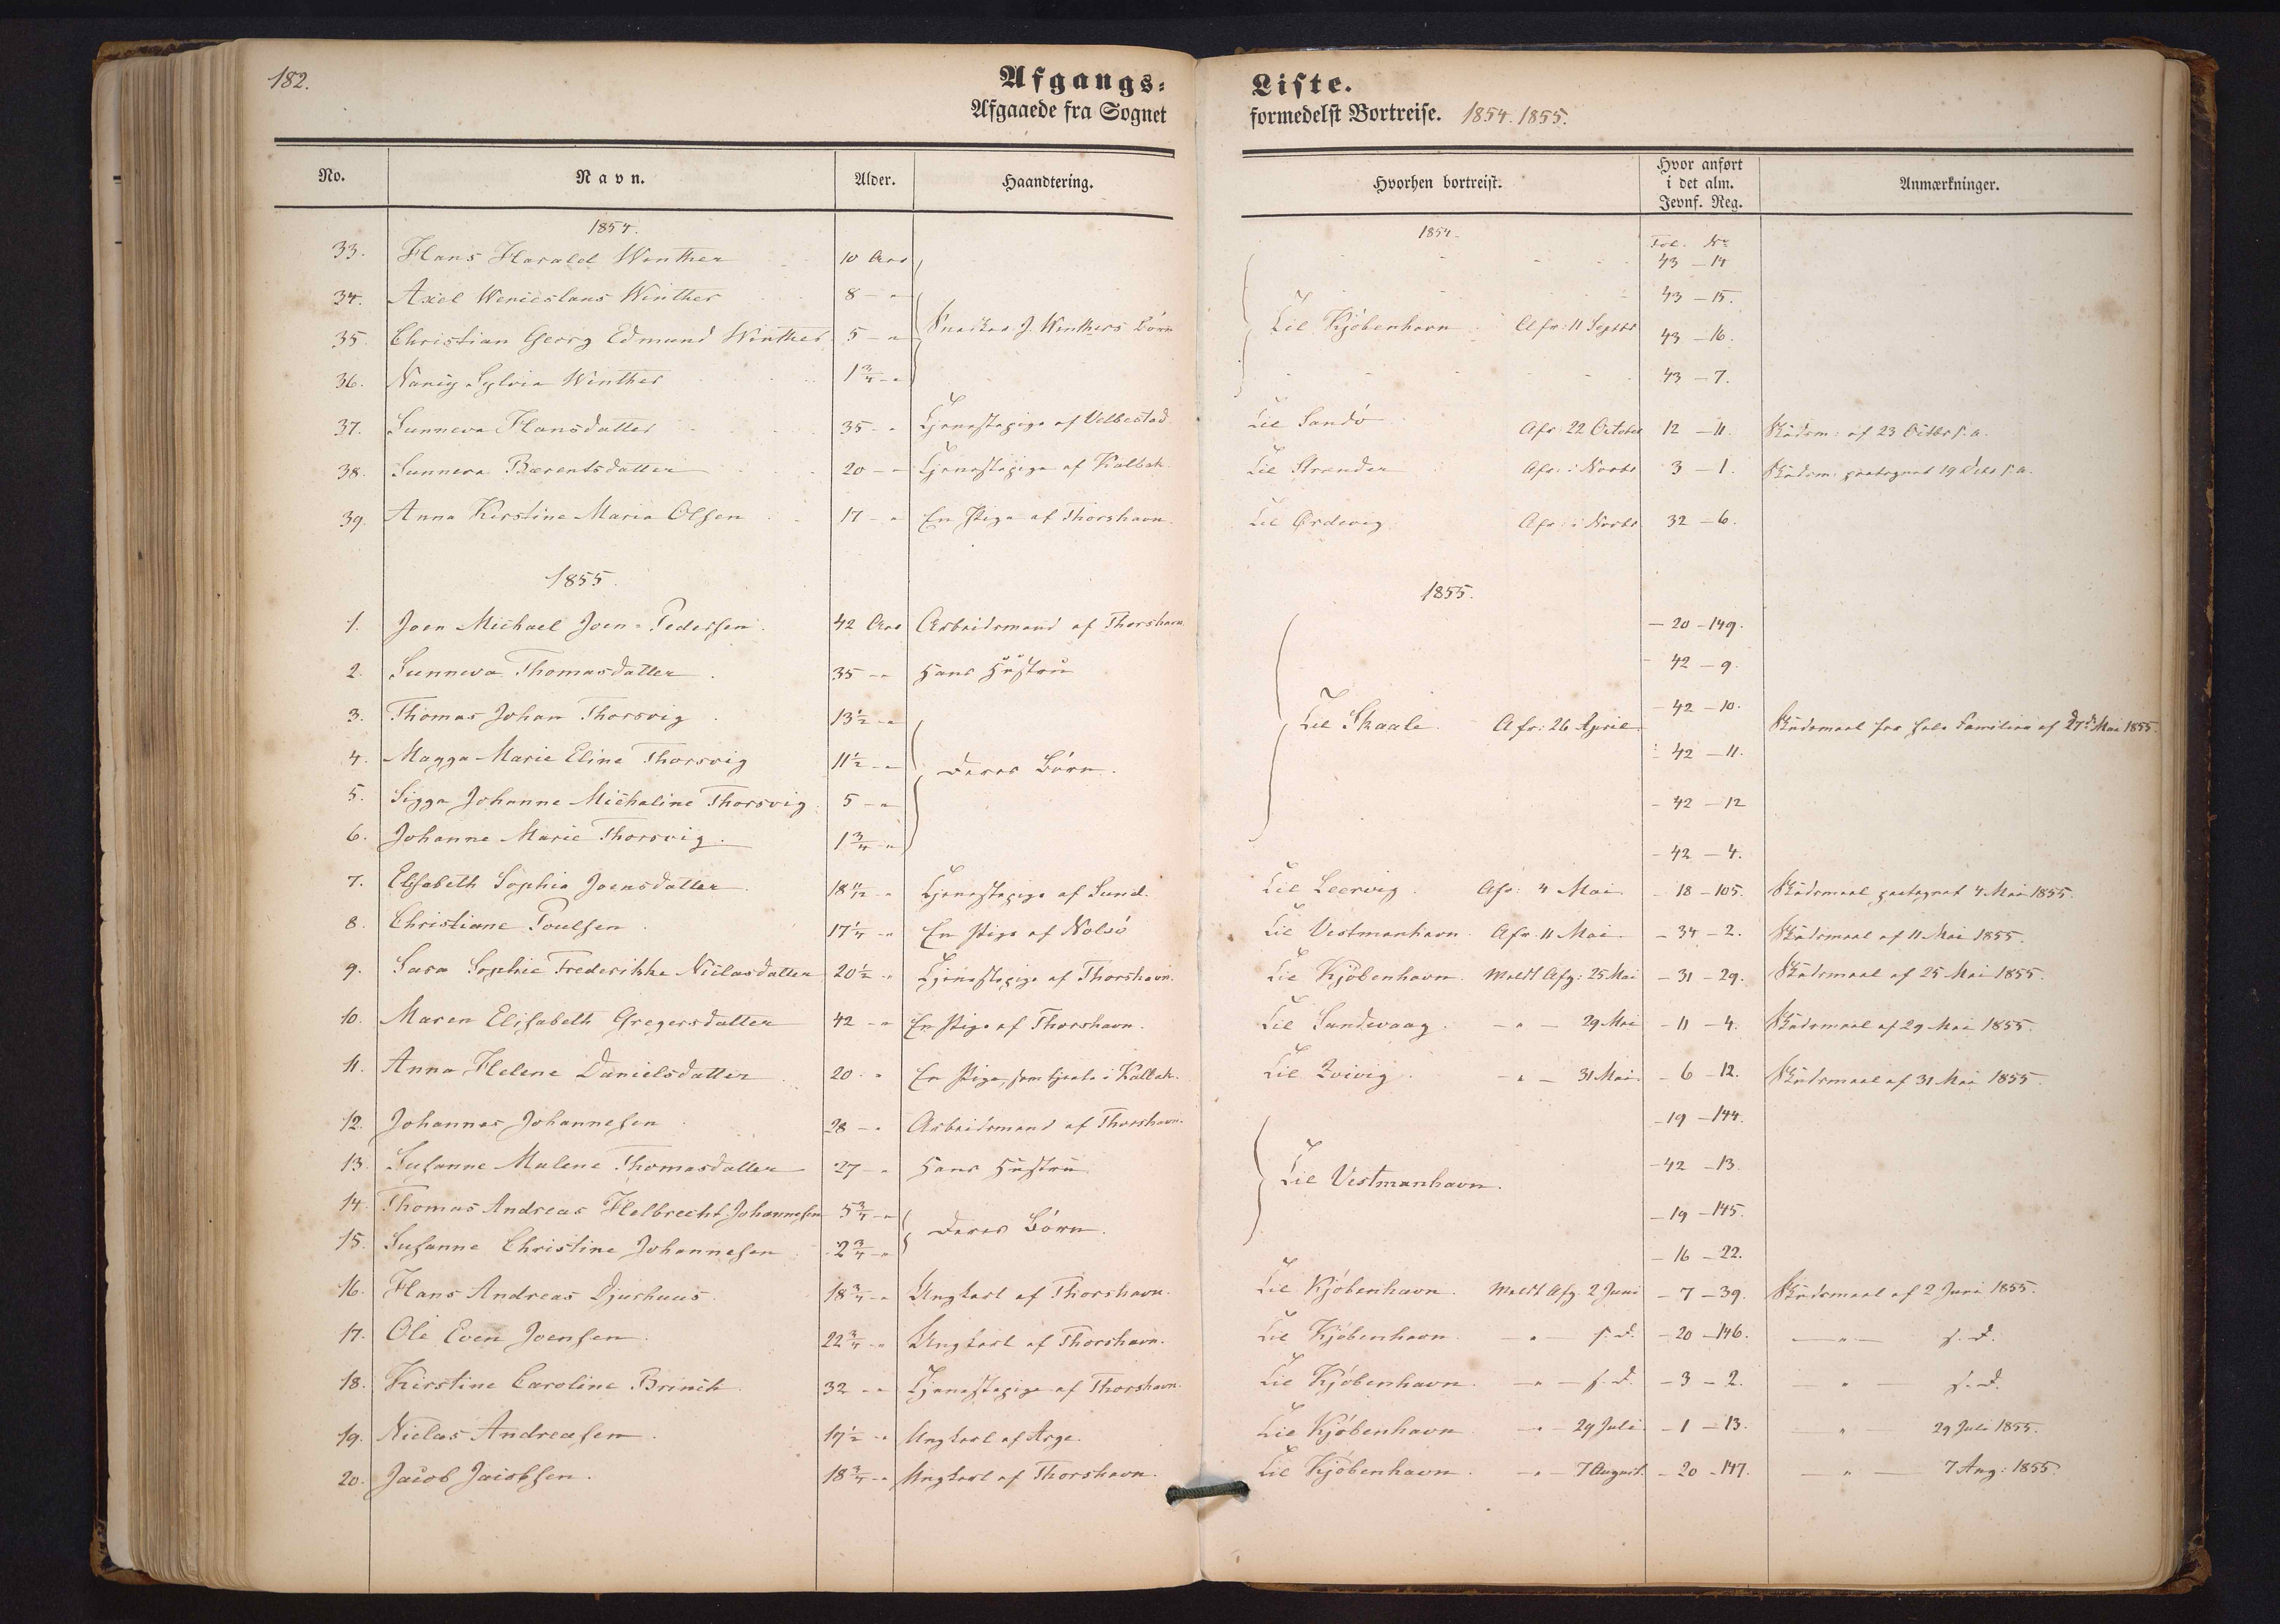 182.
Afgangs-Liste.
Afgaaede fra Sognet formedelst Bortreise. 1854. 1855.
No. Navn. Alder. Haandtering. Hvorhen bortreist. Hvor anført i det alm. Jevnf. Reg. Anmærkninger.
1854. 1854. Fol. No
33. Hans Harald Winther 10 Aar 43 - 14
34. Axel Wenceslaus Winther 8 - " 43 - 15.
35. Christian Georg Edmund Winther 5 - " Snedker J. Winthers Børn Til Kjöbenhavn Afr: 11 Septbr 43 - 16.
36. Nanig Sylvia Winther 1 3/4 - " 43 - 7.
37. Sunneva Hansdatter 35 - " Tjenestepige af Velbestad Til Sandö Afr: 22 October 12 - 11. Skudsm: af 23 Octbr s. a.
38. Sunneva Barentsdatter 20 - " Tjenestepige af Kalbak. Til Strender Afr: i Novbr 3 - 1. Skudsm: paategnet 19 s. a.
39. Anna Kirstine Maria Olsen 17 - " En Pige af Thorshavn. Til Ørdevig. Afr: i Novbr 32 - 6.
1855. 1855.
1. Joen Michael Joen-Pedersen. 42 Aar Arbeidsmand af Thorshavn. - 20 - 149.
2. Sunneva Thomasdatter. 35 - " Hans Hustru - 42 - 9.
3. Thomas Johan Thorsvig. 13 1/2 - " Til Skaale. Afr: 26 April - 42 - 10. Skudsmaal for hele Familien af 27de Mai 1855.
4. Magga Marie Eline Thorsvig 11 1/2 - " Deres Børn. - 42 - 11.
5. Sigga Johanne Michaline Thorsvig. 5 - " - 42 - 12
6. Johanne Marie Thorsvig. 1 3/4 - " - 42 - 4.
7. Elisabeth Sophia Joensdatter. 18 11/12 - " Tjenestepige af Sund. Til Leervig. Afr: 4 Mai - 18 - 105. Skudsmaal paategnet 4 Mai 1855.
8. Christiane Poulsen. 17 1/4 - " En Pige af Nolsö Til Vestmanhavn. Afr. 11 Mai - 34 - 2. Skudsmaal af 11 Mai 1855.
9. Sara Sophie Frederikke Niclasdatter 20 1/2 - " Tjenestepige af Thorshavn. Til Kjöbenhavn. Meldt Afg: 25 Mai - 31 - 29. Skudsmaal af 25 Mai 1855.
10. Maren Elisabeth Gregersdatter 42 - " En Pige af Thorshavn. Til Sandevaag. - " - 29 Mai - 11 - 4. Skudsmaal af 29 Mai 1855.
11. Anna Helene Danielsdatter 20. " En Pige, som tjente i Kalbak. Til Qvivig. - " - 31 Mai - 6 - 12. Skudsmaal af 31 Mai 1855.
12. Johannes Johannesen. 28 - " Arbeidsmand af Thorshavn. - 19 - 144.
13. Susanne Malene Thomasdatter 27 - " Hans Hustru Til Vestmanhavn. - 42 - 13.
14. Thomas Andreas Helbrecht Johannesen 5 3/4 - " Deres Børn. - 19 - 145.
15. Susanne Christine Johannesen 2 3/4 - " - 16 - 22.
16. Hans Andreas Djurhuus. 18 3/4 - " Ungkarl af Thorshavn. Til Kjöbenhavn. Meldt Afg. 2 Juni - 7 - 39. Skudsmaal af 2 Juni 1855.
17. Ole Even Joensen. 22 3/4 - " Ungkarl af Thorshavn. Til Kjöbenhavn. - " - s. D. - 20 - 146. - " - s. D.
18. Kirstine Caroline Brinck 32 - " Tjenestepige af Thorshavn. Til Kjöbenhavn. - " - s. D. - 3 - 2. " - s. D.
19. Niclas Andreasen. 19 1/2 - " Ungkarl af Arge. Til Kjöbenhavn - " - 29 Juli - 1 - 13. - " - 29 Juli 1855.
20. Jacob Jacobsen. 18 3/4 - " Ungkarl af Thorshavn. Til Kjöbenhavn. - " - 7 August. - 20 - 147. - " - 7 Aug: 1855.